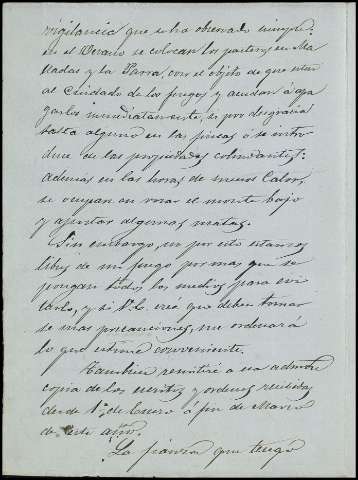 vigilancia que se ha observado siempre:
en el Verano se colocan los parteros en Ma-
tadas y la Parra, con el objeto de que esten
al Cuidado de los fuegos y acudan á apa-
garlos inmediatamente, si por desgracia
salta alguno en las fincas ó se intro-
duce en las propiedades colindantes:
además en las horas de menos Calor,
se ocupan en rozar el monte bajo
y apostar algunas matas.
Sin embargo, no por esto estamos
libres de un fuego por mas que se
pongan todos los medios para evi-
tarlo, y si V. E. cree que deben tomar
se mas precauciones, me ordenará
lo que estime conveniente.
Tambien remitiré á esa admon
copia de los escritos y ordenes recibidas
desde 1º de Enero á fin de Marzo
de este año.
La fianza que tengo